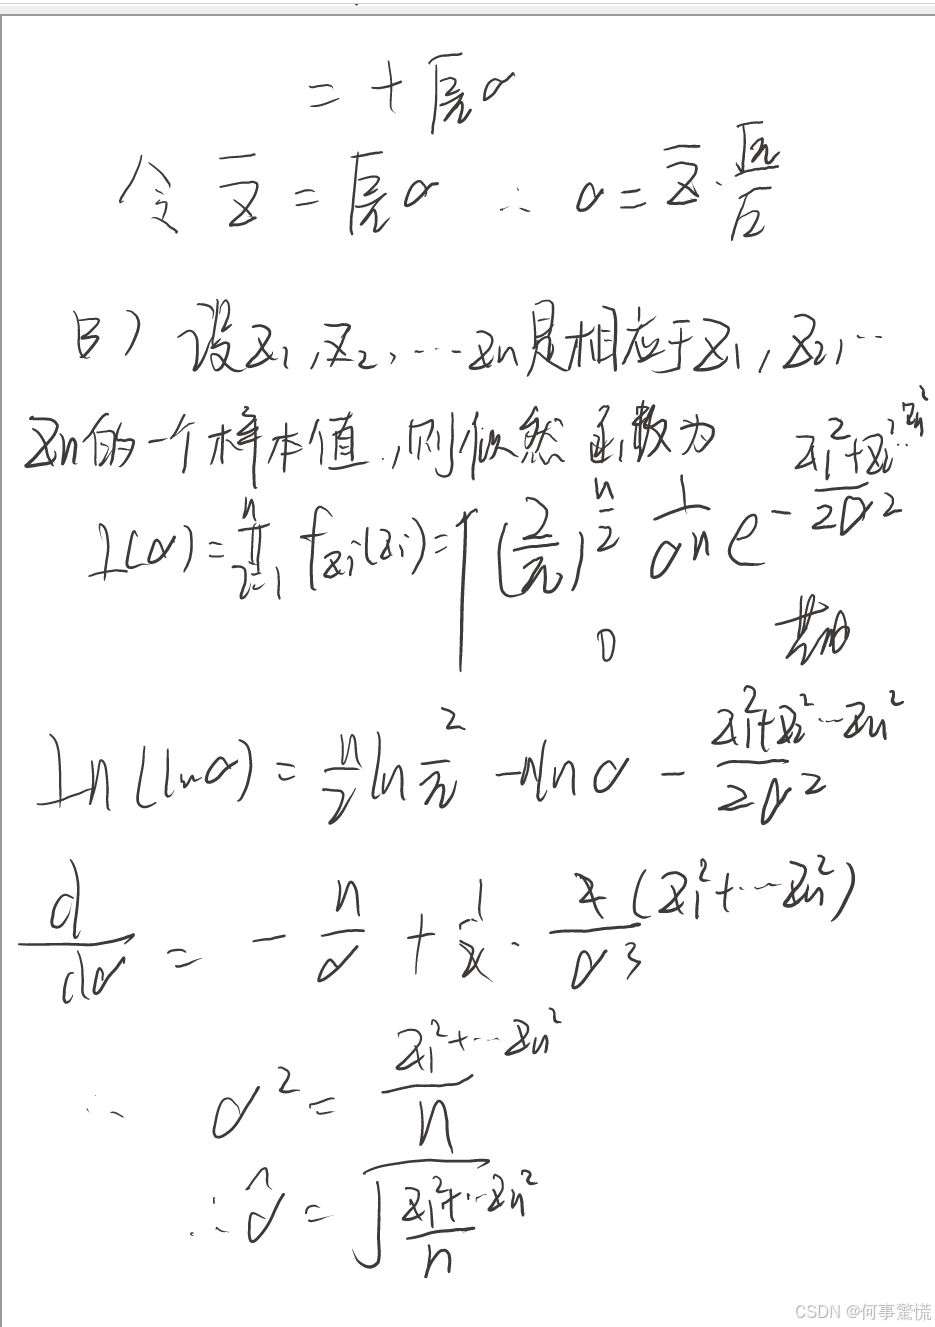 = + √(2/π) σ
令 z̄ = √(2/π) σ ∴ σ = z̄ · √π/√2
B) 设 z₁, z₂, ⋯ zn 是相应于 z₁, z₂, ⋯
zn的一个样本值, 则似然函数为
L(σ) = ∏ᵢ₌₁ⁿ f_zᵢ(zᵢ) = { (2/π)^(n/2) 1/σⁿ e^(-(z₁²+z₂²⋯zn²)/(2σ²))
0 其他
Ln(lnσ) = n/2 ln 2/π - nlnσ - (z₁²+z₂²⋯zn²)/(2σ²)
d/dσ = - n/σ + 1/2 · 2(z₁²+⋯zn²)/σ³
∴ σ² = (z₁²+⋯zn²)/n
∴ σ̂ = √((z₁²+⋯zn²)/n)
CSDN @何事驚慌